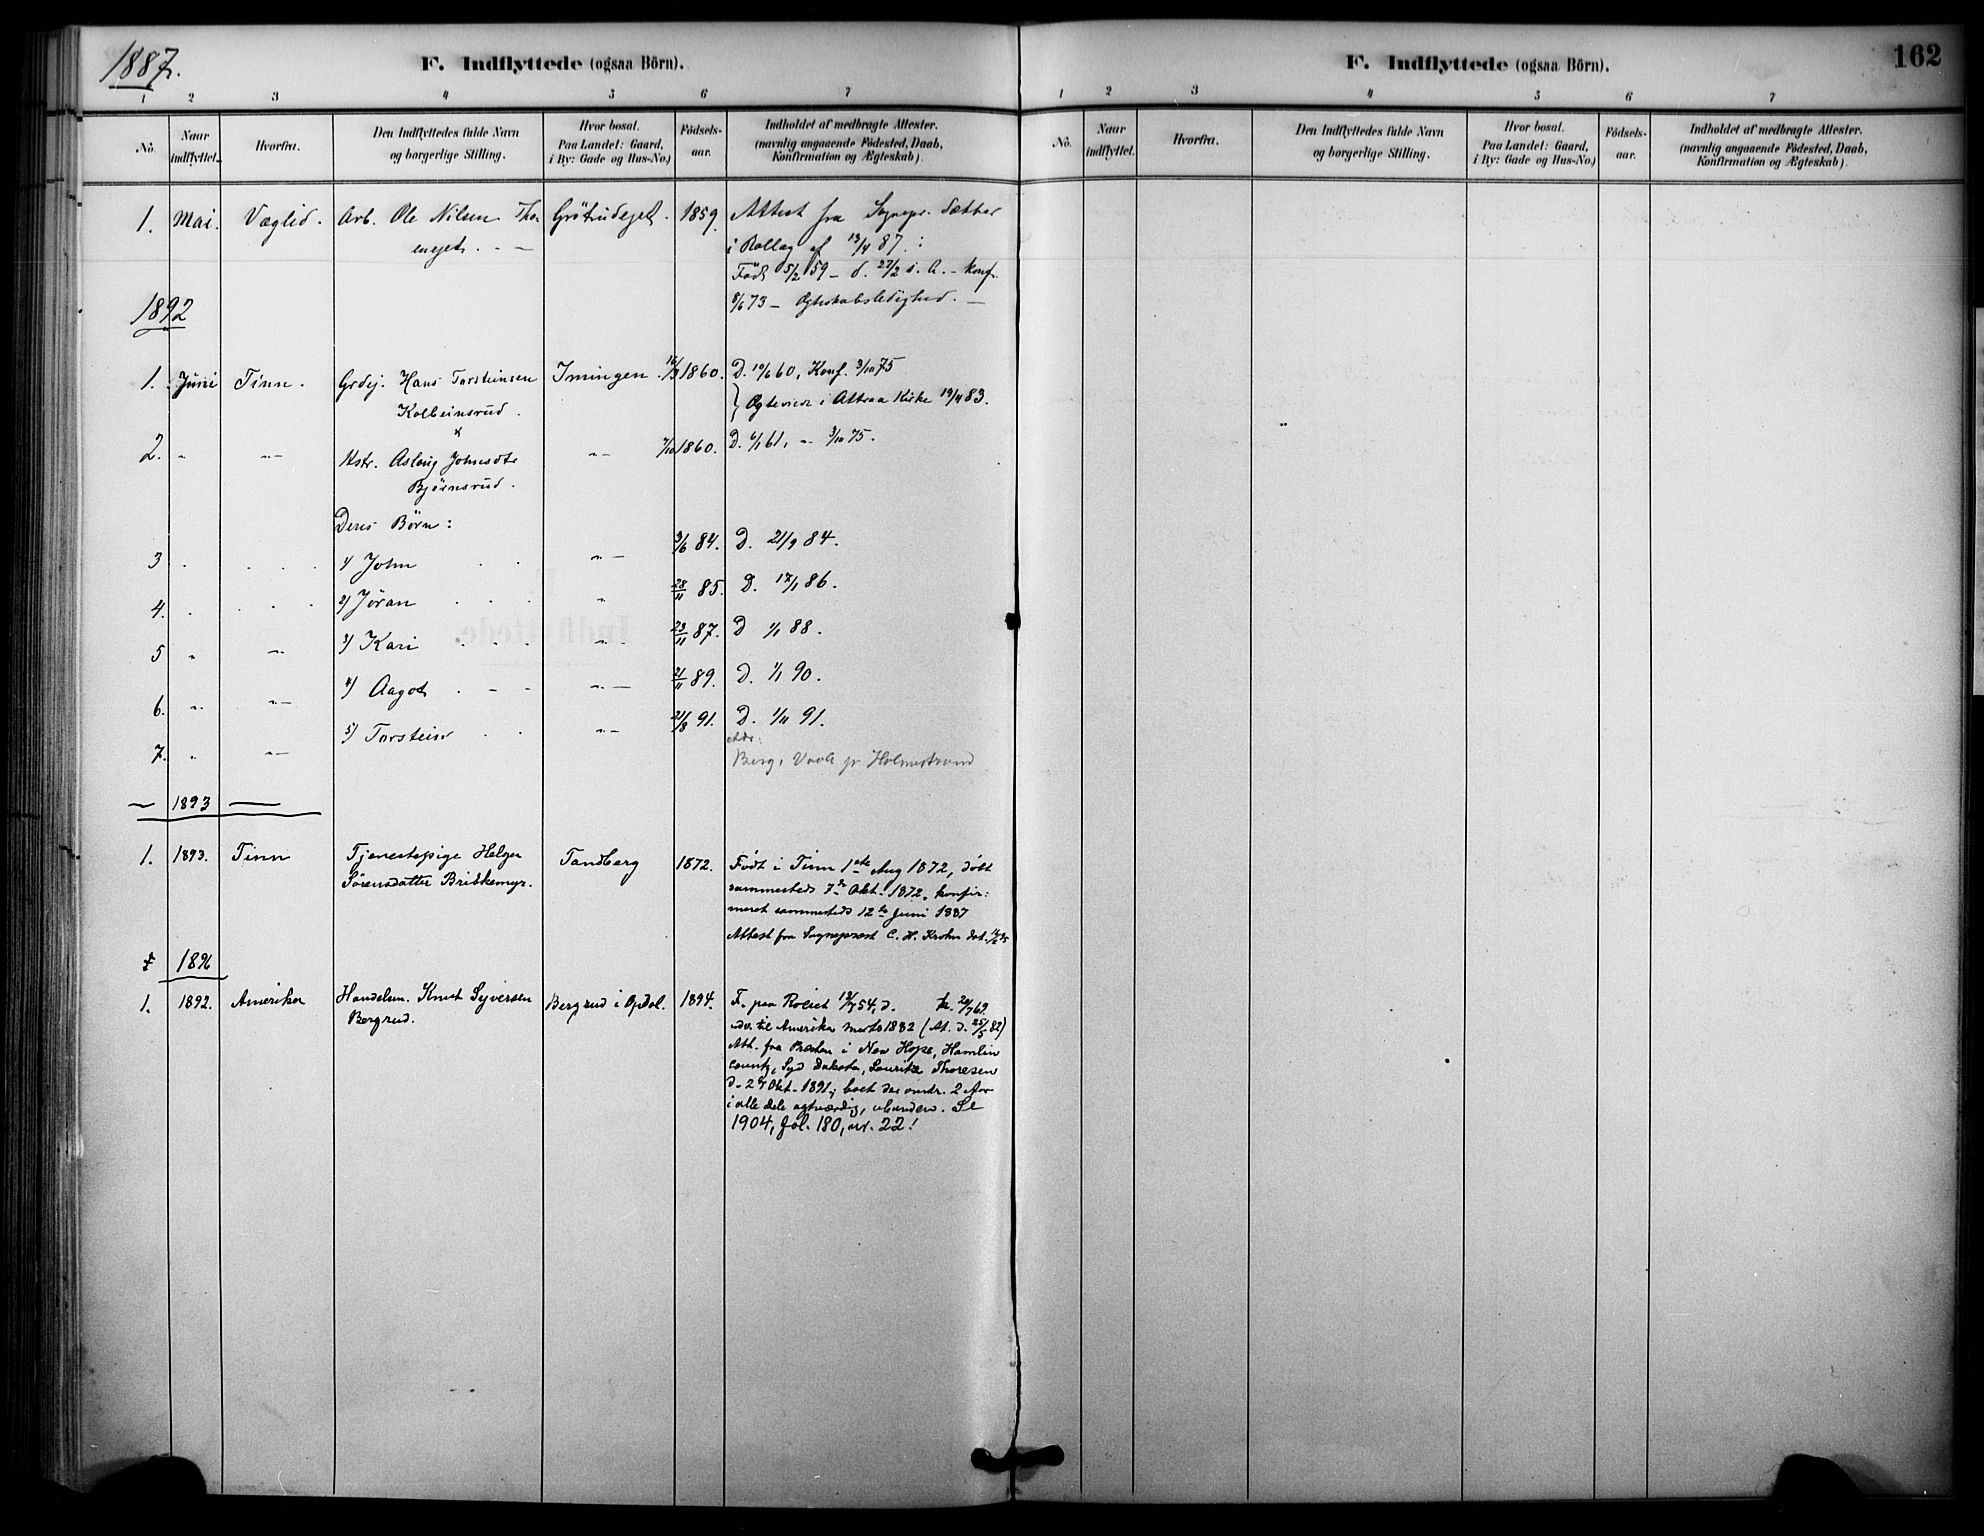 1887.
F. Indflyttede (ogsaa Börn).
1 2 3 4 5 6 7
No.
Naar indflyttet.
Hvorfra.
Den Indflyttedes fulde Navn
og borgerlige Stilling.
Hvor bosat.
Paa Landet: Gaard,
i By: Gade og Hus-No.)
Fødsels-
aar.
Indholdet af medbragte Attester.
(navnlig angaaende Födested, Daab,
Konfirmation og Ægteskab).
1. Mai. Væglid. Arb. Ole Nilsen 1859. Attest fra Sognepr. Sæther
i Rollag af 13/4 87. :
Født 5/2 59 – d. 27/2 s. A. – konf.
8/6 73 – Ægteskabsledighed. —
1892
1. Juni Tinn. Grdej. Hans Torsteinsen Imingen 16/3 1860. D. 10/6 60, Konf. 3/10 75
Kolbeinsrud. } Ægteviede i Attraa Kirke 19/4 83.
&
2. " –"– Hstr. Aslaug Johnsdtr –"– 7/10 1860. D. 6/1 61, –"– 3/10 75.
Bjørnsrud.
Deres Børn:
3 . . . . 1) John . . –"– 3/6 84. D. 21/9 84.
4. . . . . 2) Jøran . . . " 28/11 85. D. 17/1 86.
5 " –"– 3) Kari . . . –"– 23/11 87. D 1/1 88.
6. –"– –"– 4) Aagot . – – –"– 21/11 89. D. 1/1 90.
7. " –"– 5) Torstein . . –"– 21/8 91. D. 1/11 91.
Adr:
Berg, Vaale pr Holmestrand
— 1893 —
1. 1893. Tinn Tjenestepige Helga Tandberg 1872. Født i Tinn 1ste Aug 1872, døbt
Sørensdatter Briskemyr. sammesteds 7de Okt. 1872, konfir=
meret sammesteds 12te Juni 1887
Attest fra Sogneprest C. H. Krohn dat.
1896
1. 1892. Amerika Handelsm. Knut Syversen Bergrud i Opdal. 1894. F. paa Rolset 12/7 54, d. k. 20/7 69.
Bergrud. udv. til Amerika marts 1882 (At. d. 25/3 82)
Att. fra Presten i New Hope, Hamlin
county, Syd Dakota, Lauritz Thoresen
d. 27 Okt. 1891; boet der omtr. 2 Aar
i alle dele agtværdig, ubunden. Se
1904, fol. 180, nr. 22!
F. Indflyttede (ogsaa Börn).
162
1 2 3 4 5 6 7
No.
Naar
indflyttet.
Hvorfra.
Den Indflyttedes fulde Navn
og borgerlige Stilling.
Hvor bosat.
Paa Landet: Gaard,
i By: Gade og Hus-No.)
Fødsels-
aar.
Indholdet af medbragte Attester.
(navnlig angaaende Födested, Daab,
Konfirmation og Ægteskab).